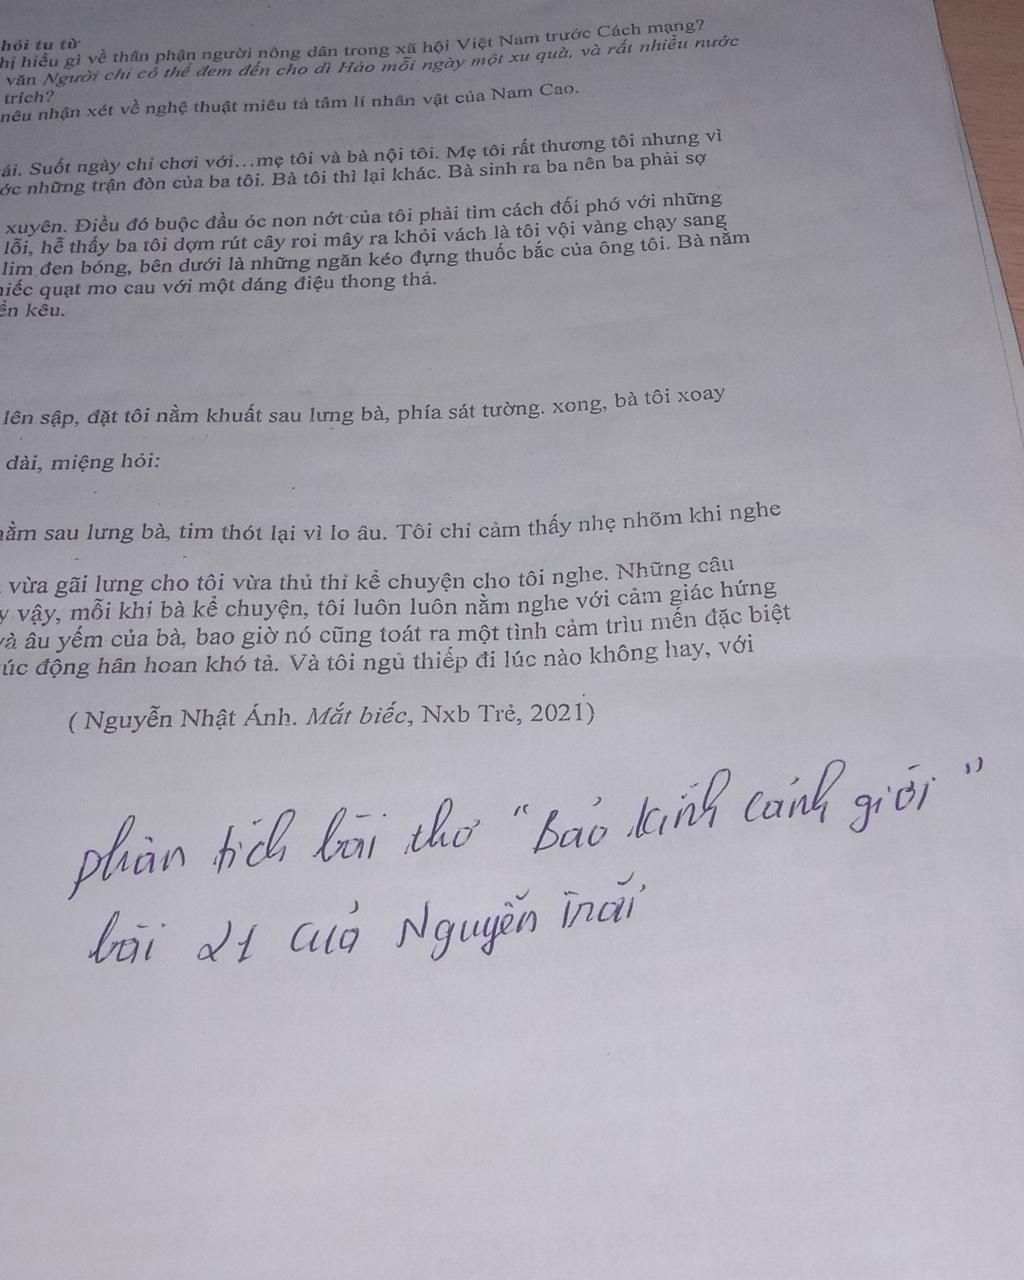 hỏi tu từ
hị hiểu gì về thân phận người nông dân trong xã hội Việt Nam trước Cách mạng?
văn Người chỉ có thể đem đến cho dì Hảo mỗi ngày một xu quà, và rất nhiều nước
trích?
nêu nhận xét về nghệ thuật miêu tả tâm lí nhân vật của Nam Cao.
ái. Suốt ngày chỉ chơi với...mẹ tôi và bà nội tôi. Mẹ tôi rất thương tôi nhưng vì
ớc những trận đòn của ba tôi. Bà tôi thì lại khác. Bà sinh ra ba nên ba phải sợ
xuyên. Điều đó buộc đầu óc non nớt của tôi phải tìm cách đối phó với những
lỗi, hễ thấy ba tôi dợm rút cây roi mây ra khỏi vách là tôi vội vàng chạy sang
lim đen bóng, bên dưới là những ngăn kéo đựng thuốc bắc của ông tôi. Bà nằm
hiếc quạt mo cau với một dáng điệu thong thả.
ền kêu.
lên sập, đặt tôi nằm khuất sau lưng bà, phía sát tường. xong, bà tôi xoay
dài, miệng hỏi:
nằm sau lưng bà, tim thót lại vì lo âu. Tôi chỉ cảm thấy nhẹ nhõm khi nghe
vừa gãi lưng cho tôi vừa thủ thỉ kể chuyện cho tôi nghe. Những câu
y vậy, mỗi khi bà kể chuyện, tôi luôn luôn nằm nghe với cảm giác hứng
và âu yếm của bà, bao giờ nó cũng toát ra một tình cảm trìu mến đặc biệt
úc động hân hoan khó tả. Và tôi ngủ thiếp đi lúc nào không hay, với
( Nguyễn Nhật Ánh. Mắt biếc, Nxb Trẻ, 2021)
phân tích bài thơ "Bảo kính cảnh giới"
bài 21 của Nguyễn Trãi